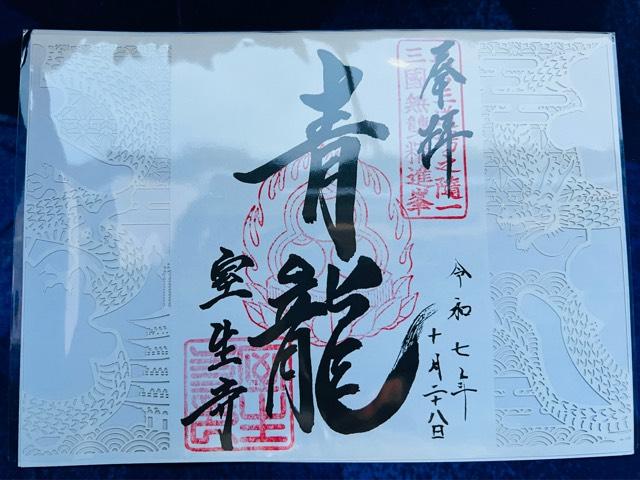 奉拝
三國無雙精進峯
之隨一
青龍
室生寺
令和七年
十月二十八日